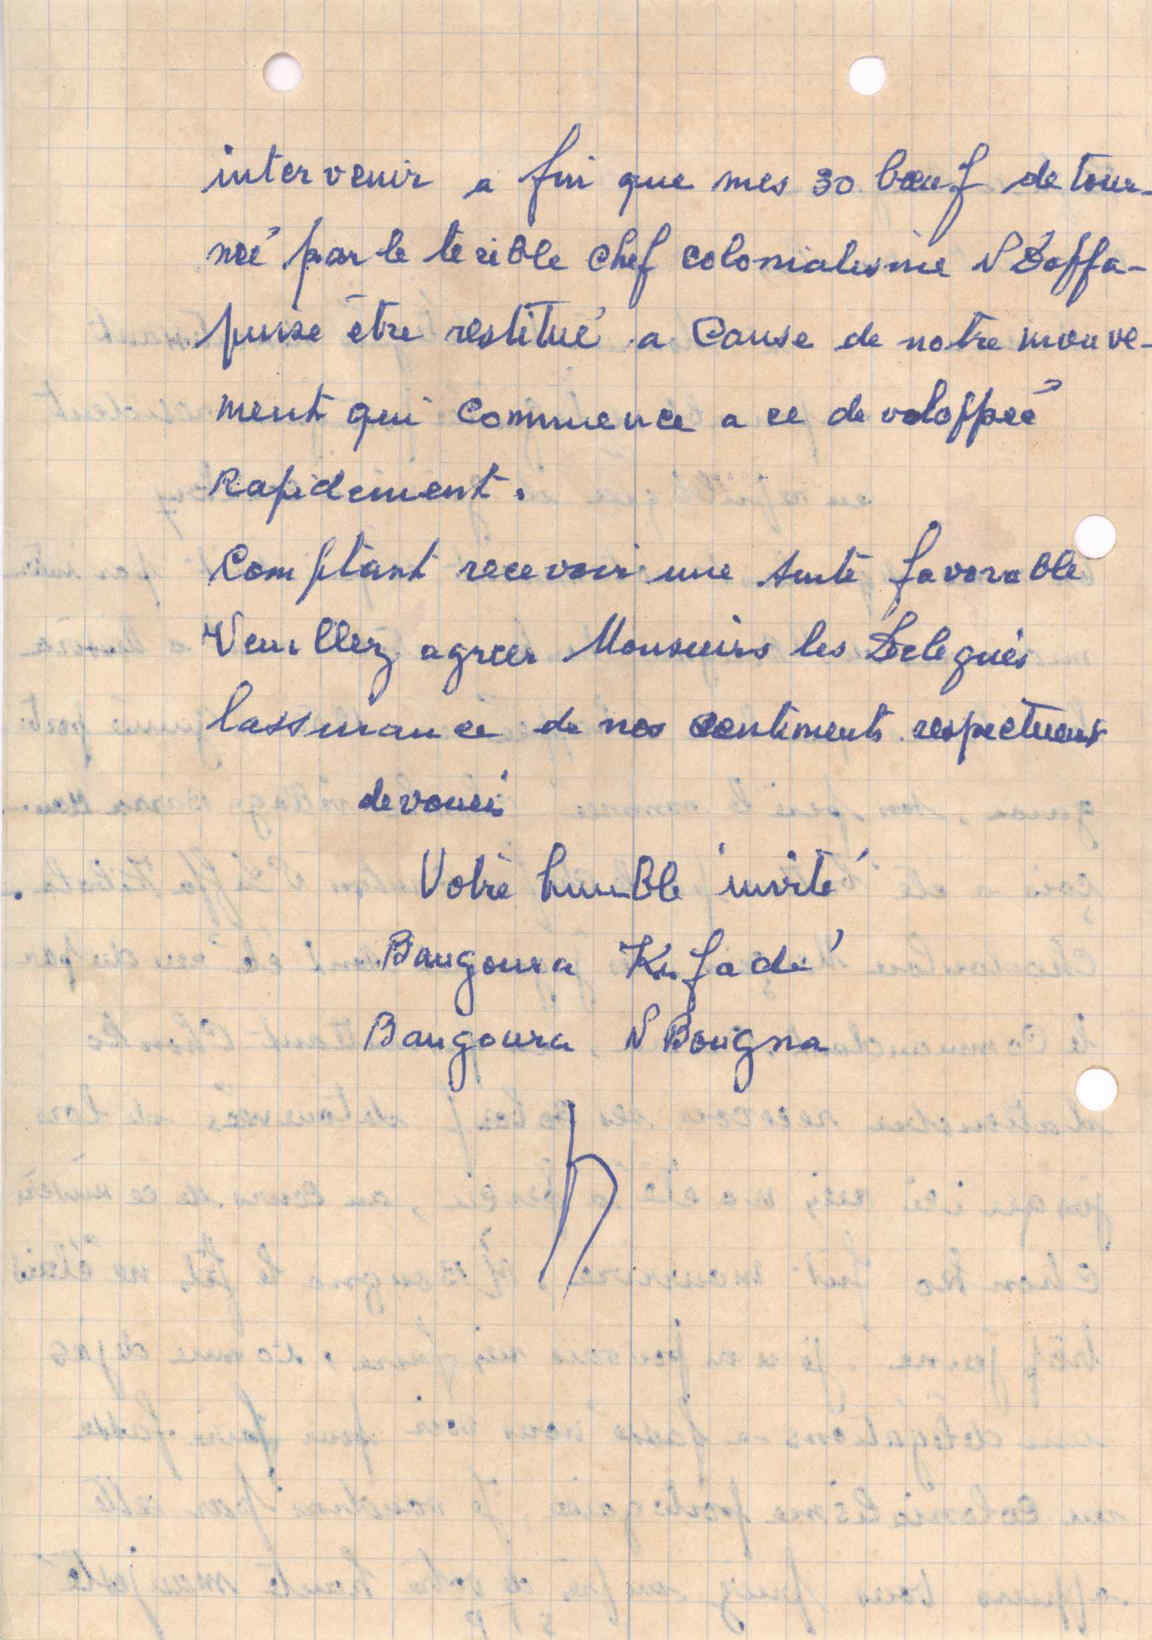 intervenir a fin que mes 30 bœuf detour-
neé par le terible chef colonialisme N'Daffa-
puise être restitué a cause de notre mouve-
ment qui commence a ce developpeé
Rapidement.
Comptant recevoir une suite favorable
Veuillez agreer Monsieurs les Delegués
lassurance de nos sentiments respectueux
devoueé
Votre humble invité
Bangoura Kifadé
Bangoura N'Bougna